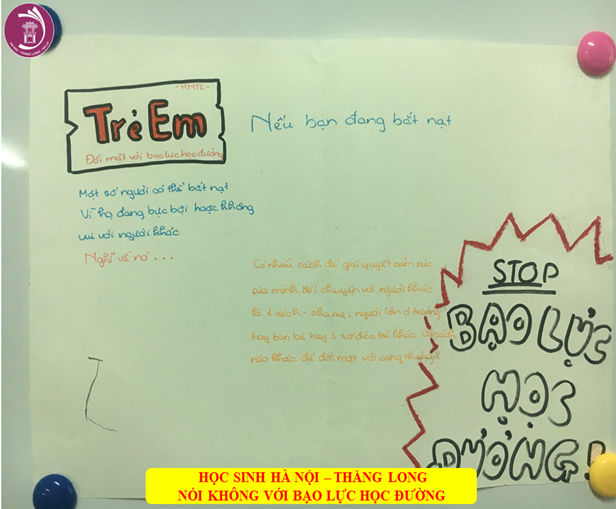 -HNTL-
Trẻ Em
Đối mặt với bạo lực học đường
Nếu bạn đang bắt nạt
Một số người có thể bắt nạt
Vì họ đang bực bội hoặc không
vui với người khác
Nghĩ về nó...
Có nhiều cách để giải quyết cảm xúc
của mình. Nói chuyện với người khác
là 1 cách - cha mẹ, người lớn ở trường
hay bạn bè hay 1 số đứa trẻ khác. Có cách
nào khác để đối mặt với căng thẳng?
STOP
BẠO LỰC
HỌC
ĐƯỜNG!
HỌC SINH HÀ NỘI – THĂNG LONG
NÓI KHÔNG VỚI BẠO LỰC HỌC ĐƯỜNG